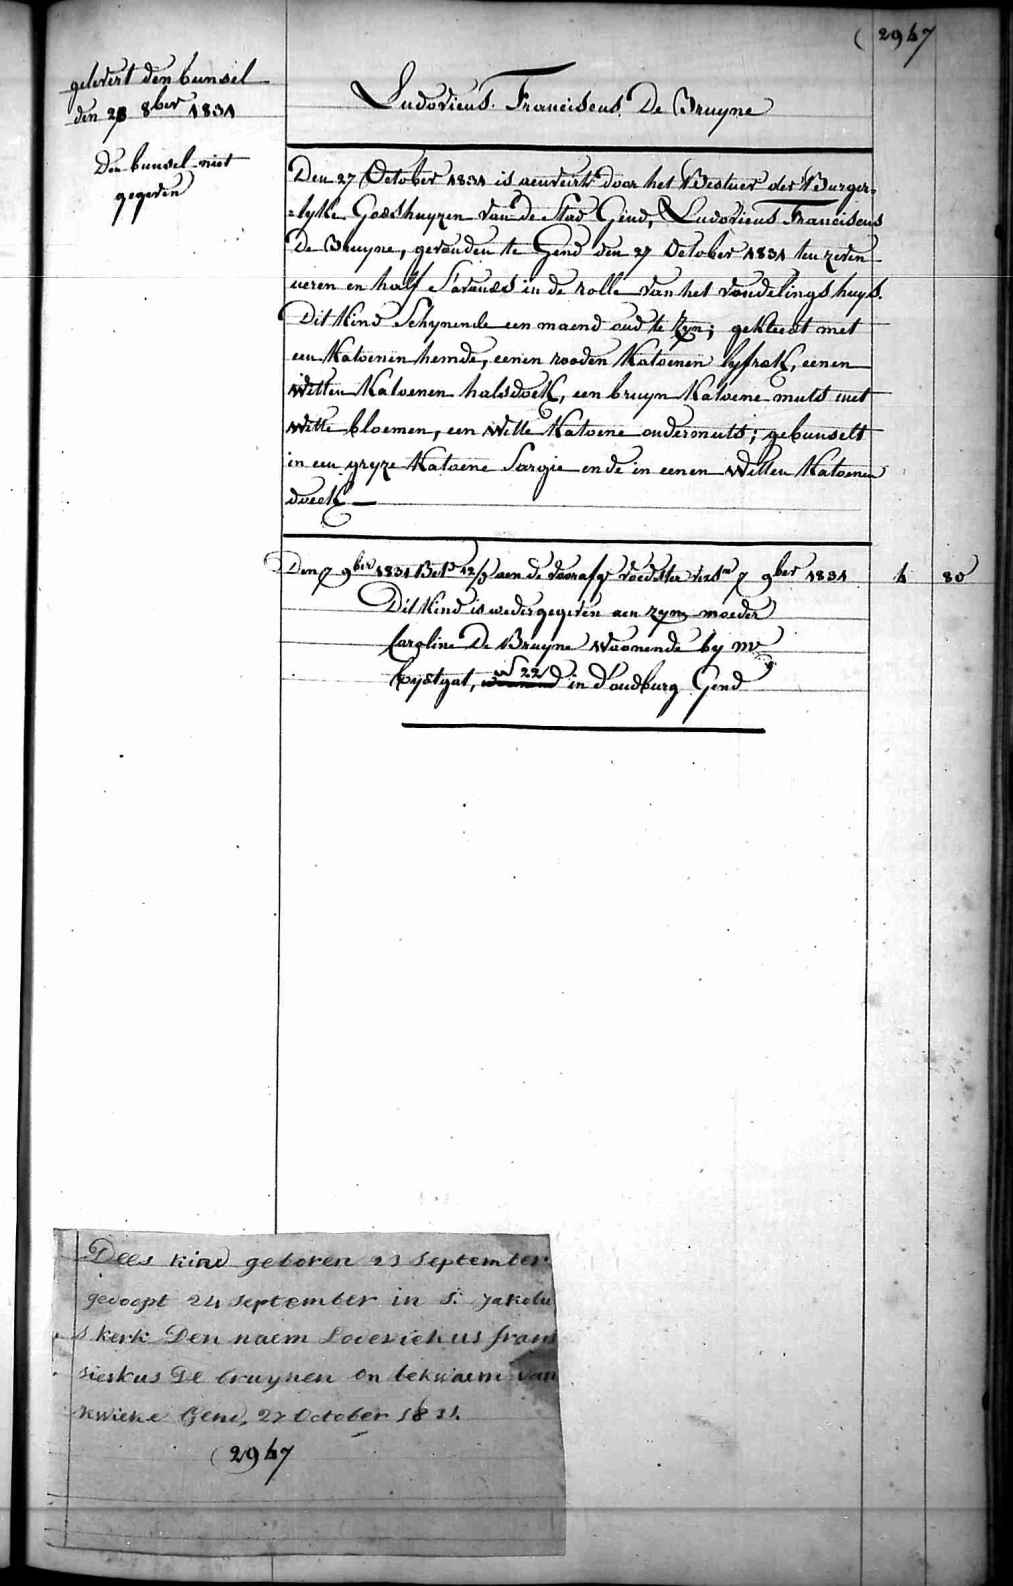 ( 2947
gelevert den bunsel
den 28 8ber 1831
Den bunsel niet
gegeven
Ludovicus Franciscus De Bruyne
Den 27 October 1831 is aenveirt door het Bestuer der Burger=
=lyke Godshuyzen van de Stad Gend, Ludovicus Franciscus
De Bruyne, gevonden te Gend den 27 October 1831 ten zeven
ueren en half s'avonds in de rolle van het vondelingshuys.
Dit Kind Schynende een maend oud te zyn; gekleedt met
een Katoenen hemde, eenen rooden Katoenen lyfrok, eenen
witten Katoenen halsdoek, een bruyn Katoene muts met
witte bloemen, een witte Katoene ondermuts; gebunselt
in een gryze Katoene Sargie ende in eenen witten Katoenen
doeck
Den 7 9ber 1831 aen de voedster 7 9ber 1831 4 80
Dit Kind is wedergegeven aen zyne moeder
Caroline De Bruyne woonende by
No 22 in d'oudburg Gend
Dees kind geboren 23 September
gedoopt 24 September in St Jakobu
s kerk Den naem Lodevickus frans
sieskus De bruynen on bekwaem van
kwieke Gend, 27 October 1831.
( 2947